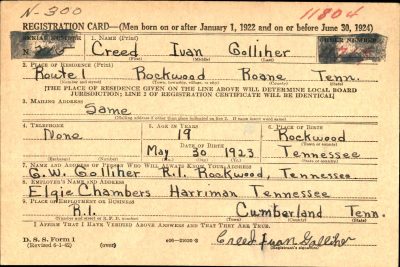 N-300
11804
REGISTRATION CARD—(Men born on or after January 1, 1922 and on or before June 30, 1924)
SERIAL NUMBER 1. NAME (Print) ORDER NUMBER
N- Creed Ivan Golliher
(First) (Middle) (Last)
2. PLACE OF RESIDENCE (Print)
Route 1 Rockwood Roane Tenn.
(Number and street) (Town, township, village, or city) (County) (State)
[THE PLACE OF RESIDENCE GIVEN ON THE LINE ABOVE WILL DETERMINE LOCAL BOARD
JURISDICTION; LINE 2 OF REGISTRATION CERTIFICATE WILL BE IDENTICAL]
3. MAILING ADDRESS
Same
[Mailing address if other than place indicated on line 2. If same insert word same]
4. TELEPHONE 5. AGE IN YEARS 6. PLACE OF BIRTH
None 19 Rockwood
DATE OF BIRTH (Town or county)
May 30 1923 Tennessee
(Exchange) (Number) (Mo.) (Day) (Yr.) (State or country)
7. NAME AND ADDRESS OF PERSON WHO WILL ALWAYS KNOW YOUR ADDRESS
G.W. Golliher R.1. Rockwood, Tennessee
8. EMPLOYER'S NAME AND ADDRESS
Elgie Chambers Harriman Tennessee
9. PLACE OF EMPLOYMENT OR BUSINESS
R.1. Cumberland Tenn.
(Number and street or R. F. D. number) (Town) (County) (State)
I AFFIRM THAT I HAVE VERIFIED ABOVE ANSWERS AND THAT THEY ARE TRUE.
D. S. S. Form 1
(Revised 6-1-42) (over) Creed Ivan Golliher
(Registrant's signature)